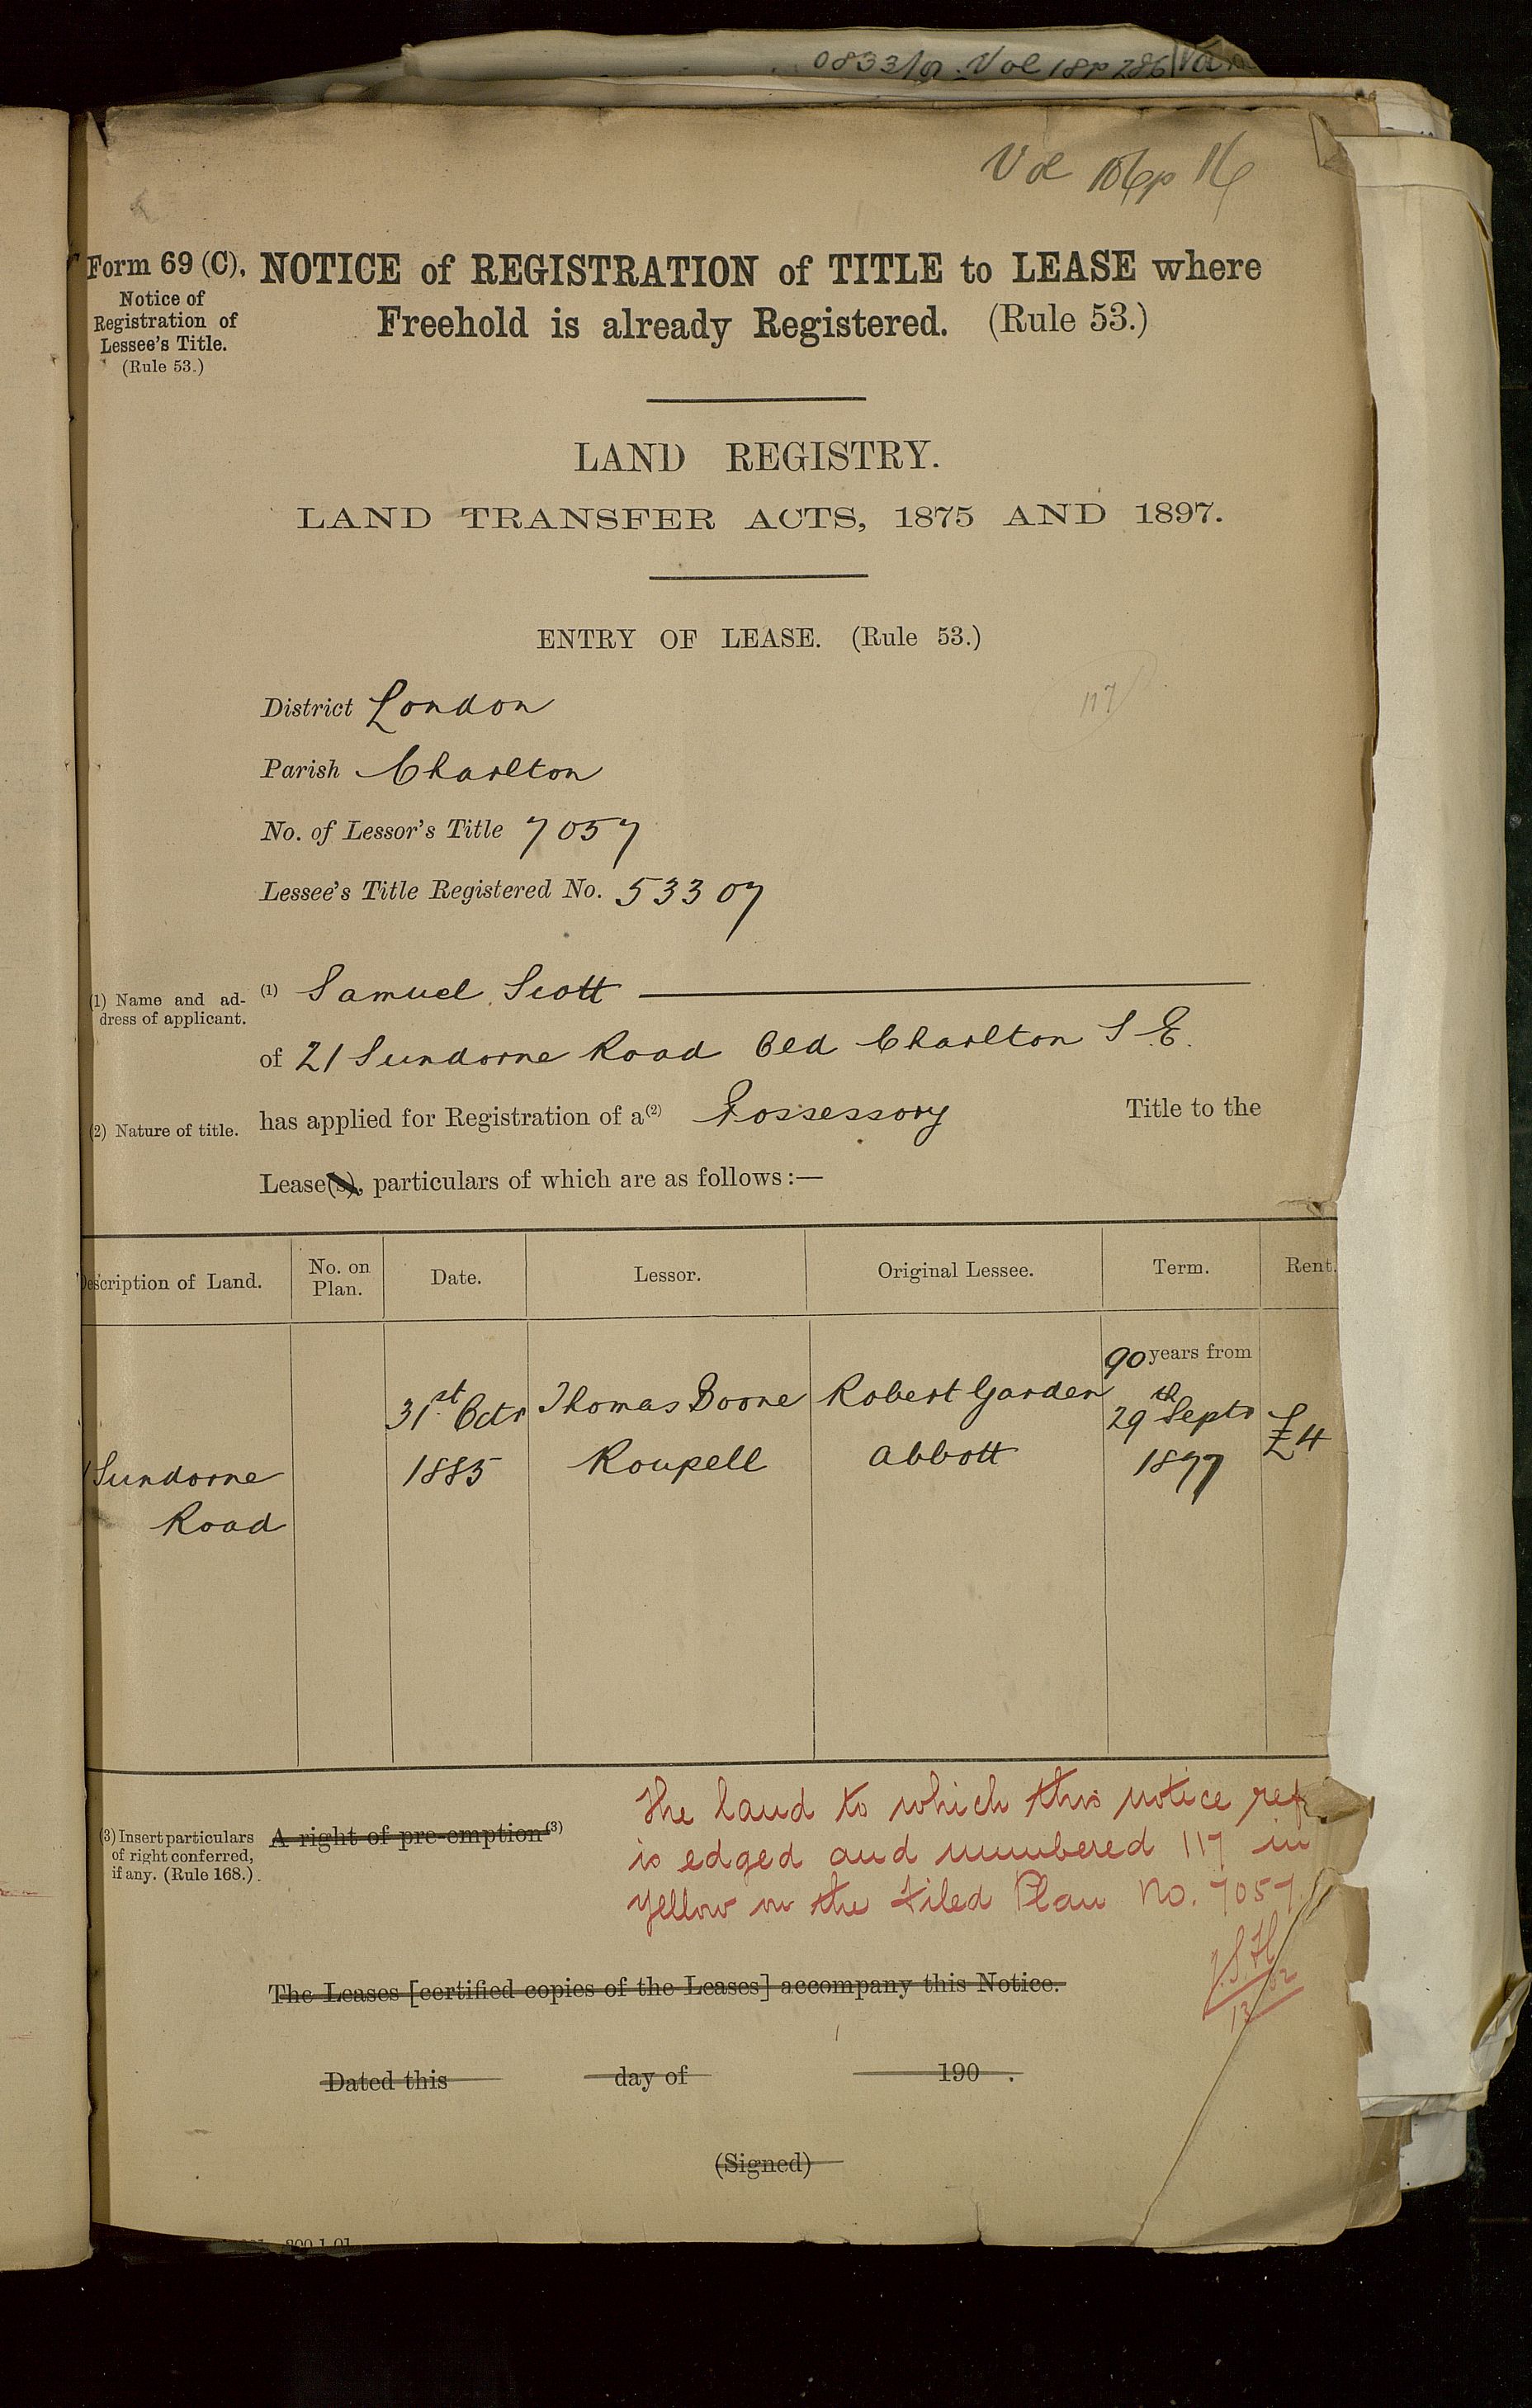 0833/9. Vol 18 p 286
Vol 106 p 16
Form 69 (C).
Notice of
Registration of
Lessee's Title.
(Rule 53.)
NOTICE of REGISTRATION of TITLE to LEASE where
Freehold is already Registered. (Rule 53.)
LAND REGISTRY.
LAND TRANSFER ACTS, 1875 AND 1897.
ENTRY OF LEASE. (Rule 53.)
District London
117
Parish Charlton
No. of Lessor's Title 7057
Lessee's Title Registered No. 53307
(1) Name and ad-
dress of applicant.
(1) Samuel Scott
of 21 Sundorne Road Old Charlton S.E.
(2) Nature of title.
has applied for Registration of a (2) Possessory Title to the
Lease(s), particulars of which are as follows:—
Description of Land. No. on Plan. Date. Lessor. Original Lessee. Term. Rent.
Sundorne
Road
31st Octr
1885
Thomas Boone
Roupell
Robert Garden
Abbott
90 years from
29th Septr
1897
£4
The land to which this notice ref
is edged and numbered 117 in
yellow on the Filed Plan No. 7057.
(3) Insert particulars
of right conferred,
if any. (Rule 168.)
A right of pre-emption (3)
The Leases [certified copies of the Leases] accompany this Notice.
Dated this day of 190 .
(Signed)